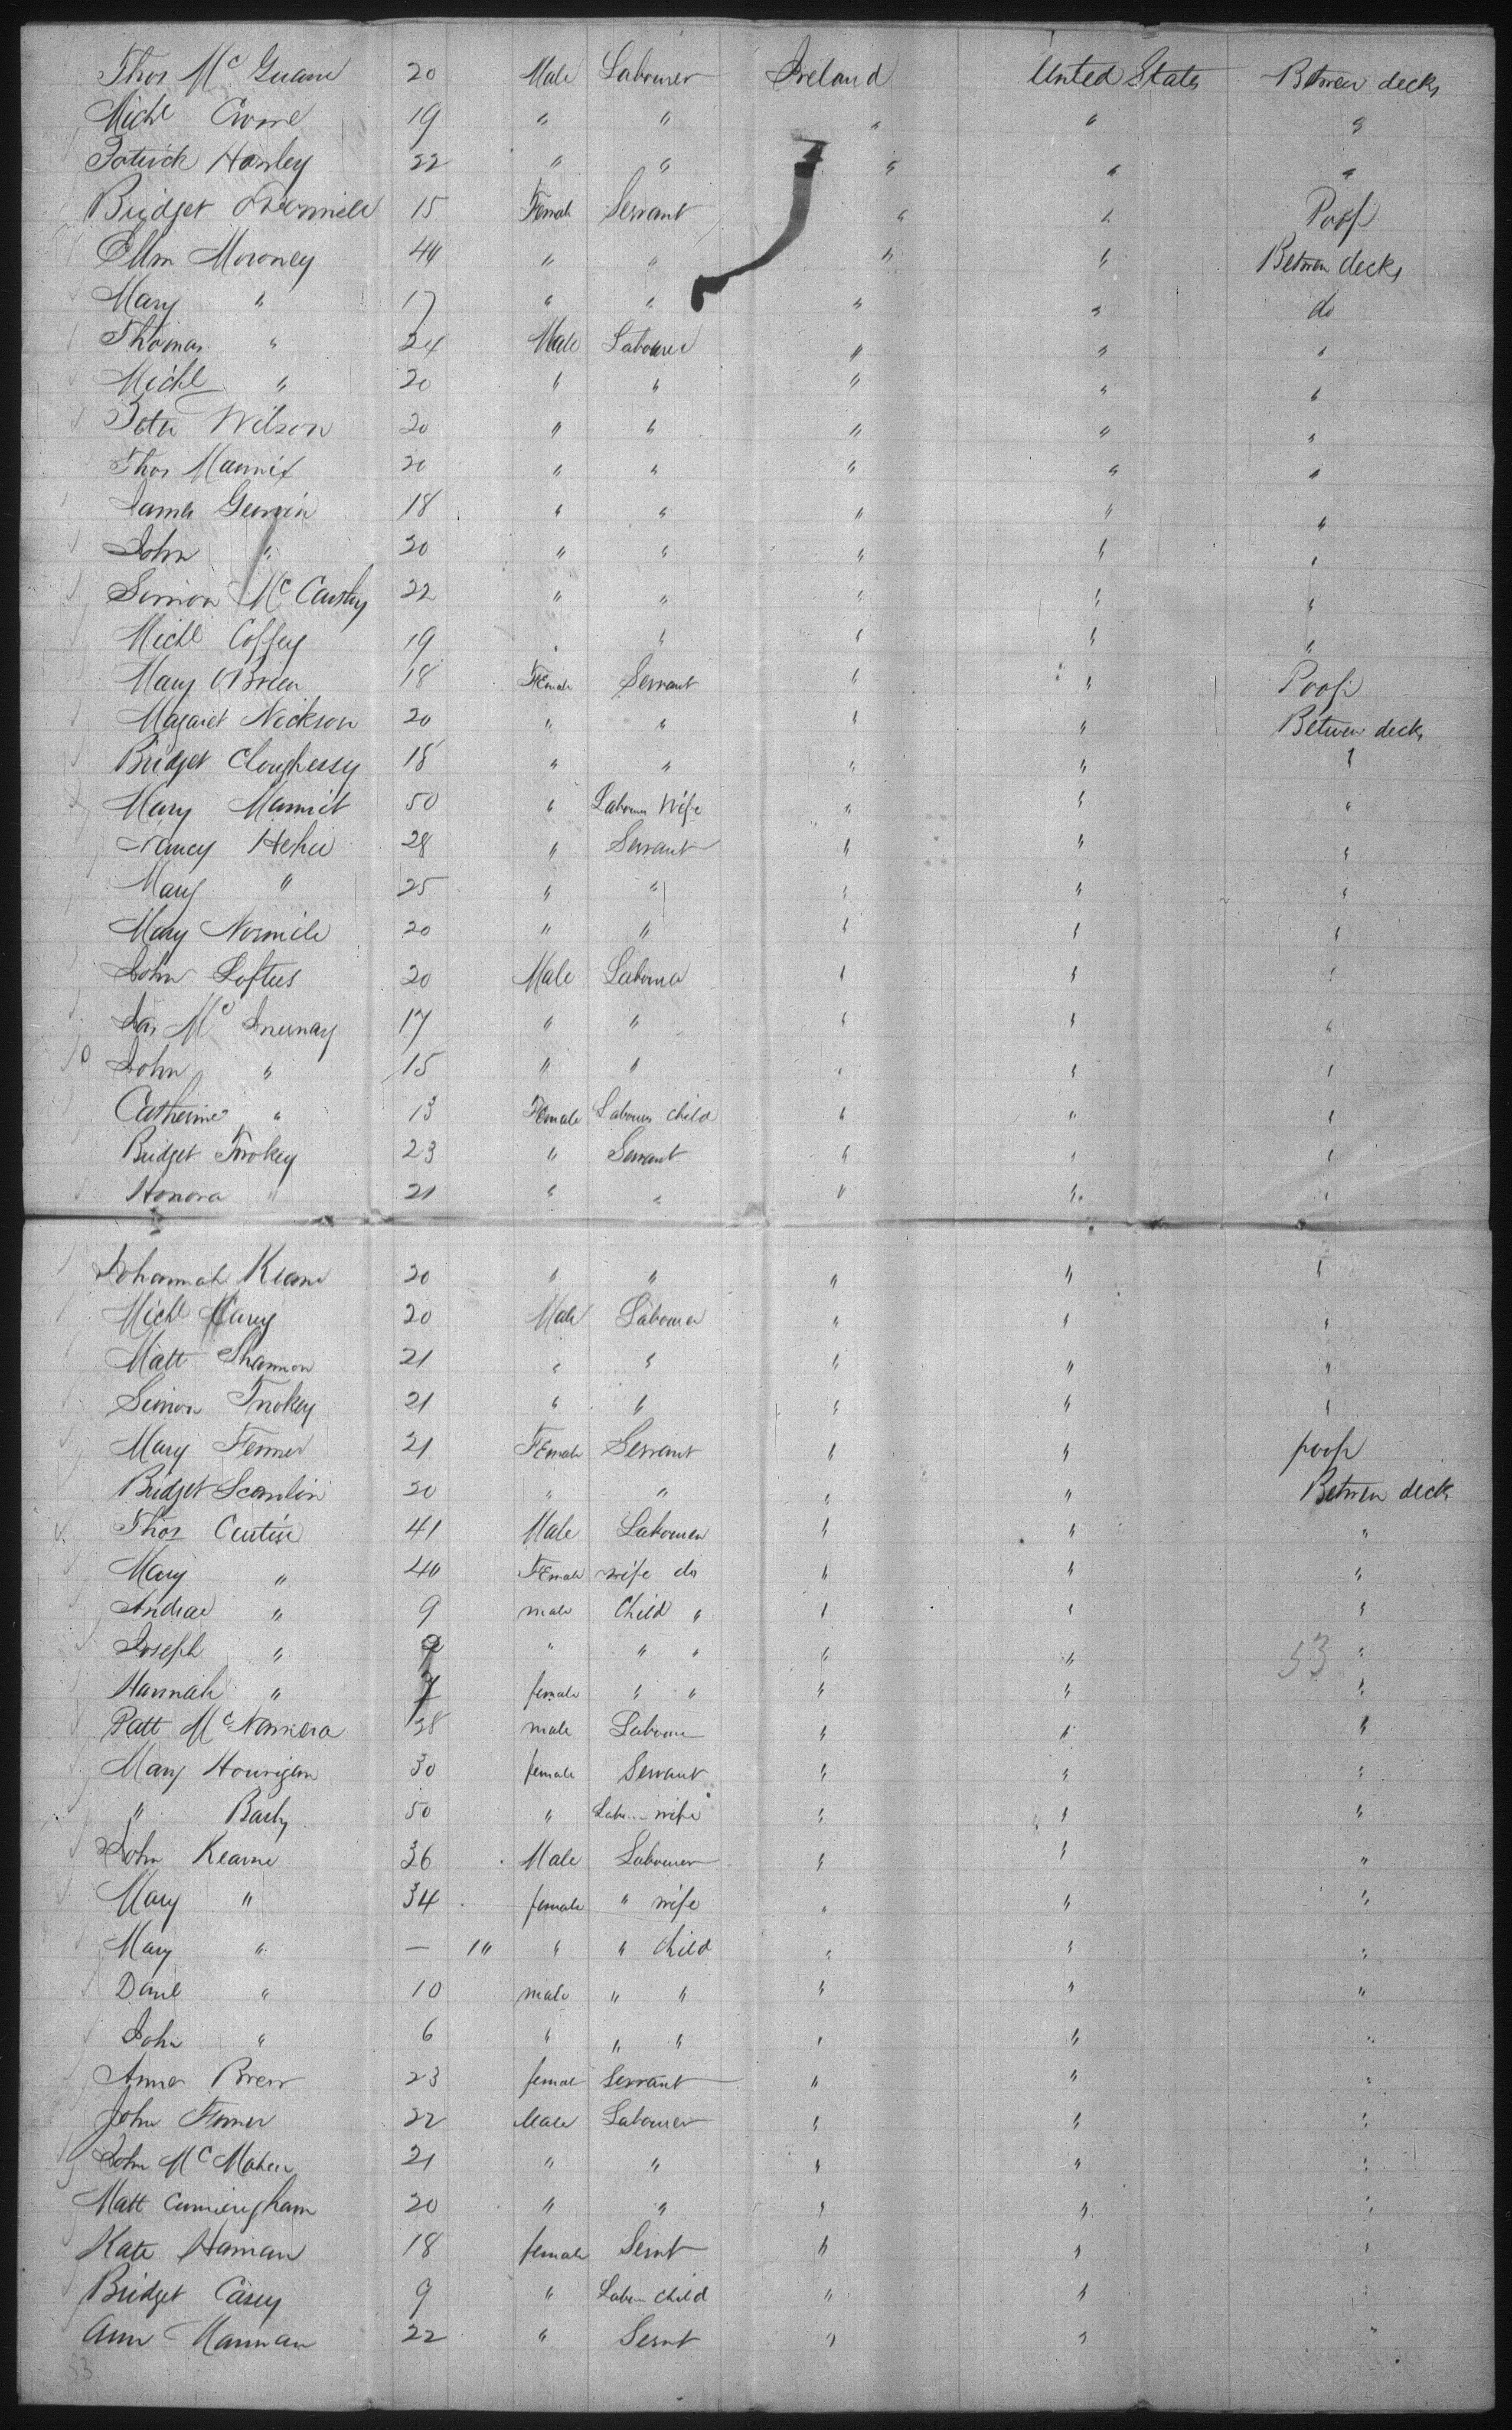 Thos Mc Guane 20 Male Labourer Ireland United States Between decks
Michl 19 " " " " "
Patrick Hanley 22 " " " " "
Bridget 15 Female Servant " " Poop
Ellen Moroney 44 " " " " Between decks
Mary " 17 " " " " do
Thomas " 24 Male Labourer " " "
Michl " 20 " " " " "
Peter Wilson 20 " " " " "
Thos Mannix 20 " " " " "
James Gernin 18 " " " " "
John " 20 " " " " "
Simon Mc Carthy 22 " " " " "
Michl Coffey 19 " " " " "
Mary O'Brien 18 Female Servant " " Poop
Magaret Nickson 20 " " " " Between decks
Bridget Cloughessy 18 " " " " "
Mary 50 " Labourer Wife " " "
Nancy Hehir 28 " Servant " " "
Mary " 25 " " " " "
Mary Normile 20 " " " " "
John Loftus 20 Male Labourer " " "
Jas Mc Inernay 17 " " " " "
John " 15 " " " " "
Catherine " 13 Female Labourers child " " "
Bridget 23 " Servant " " "
Honora " 21 " " " " "
Johannah Keane 20 " " " " "
Michl Carey 20 Male Labourer " " "
Matt Shannon 21 " " " " "
Simon 21 " " " " "
Mary 21 Female Servant " " poop
Bridget Scanlin 20 " " " " Between deck
Thos 41 Male Labourer " " "
Mary " 40 Female wife do " " "
Andrew " 9 male Child " " " "
Joseph " 9 " " " " " "
Hannah " 7 female " " " " "
53
Patt Mc Namera 28 male Labourer " " "
Mary Hourigan 30 female Servant " " "
" 50 " wife " " "
John Keane 36 Male Labourer " " "
Mary " 34 female " wife " " "
Mary " — 1" " " child " " "
Danl " 10 male " " " " "
John " 6 " " " " " "
Anne Brew 23 female Servant " " "
John 22 Male Labourer " " "
John Mc Mahon 21 " " " " "
Matt Cunningham 20 " " " " "
Kate Hannan 18 female Servt " " "
Bridget Casey 9 " child " " "
Ann Hannan 22 " Servt " " "
53